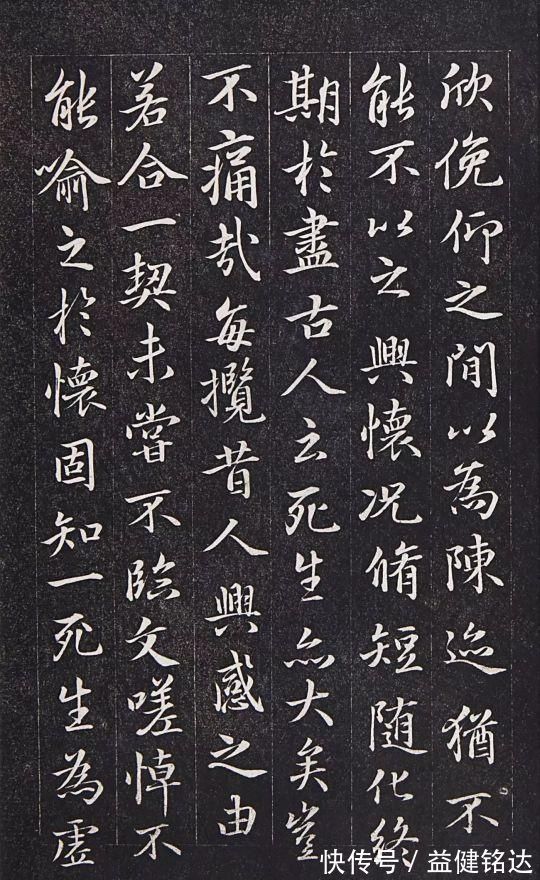 欣俛仰之閒以為陳迹猶不
能不以之興懷况脩短随化終
期於盡古人云死生亦大矣豈
不痛哉每攬昔人興感之由
若合一契未嘗不臨文嗟悼不
能喻之於懷固知一死生為虛
快传号 / 益健铭达